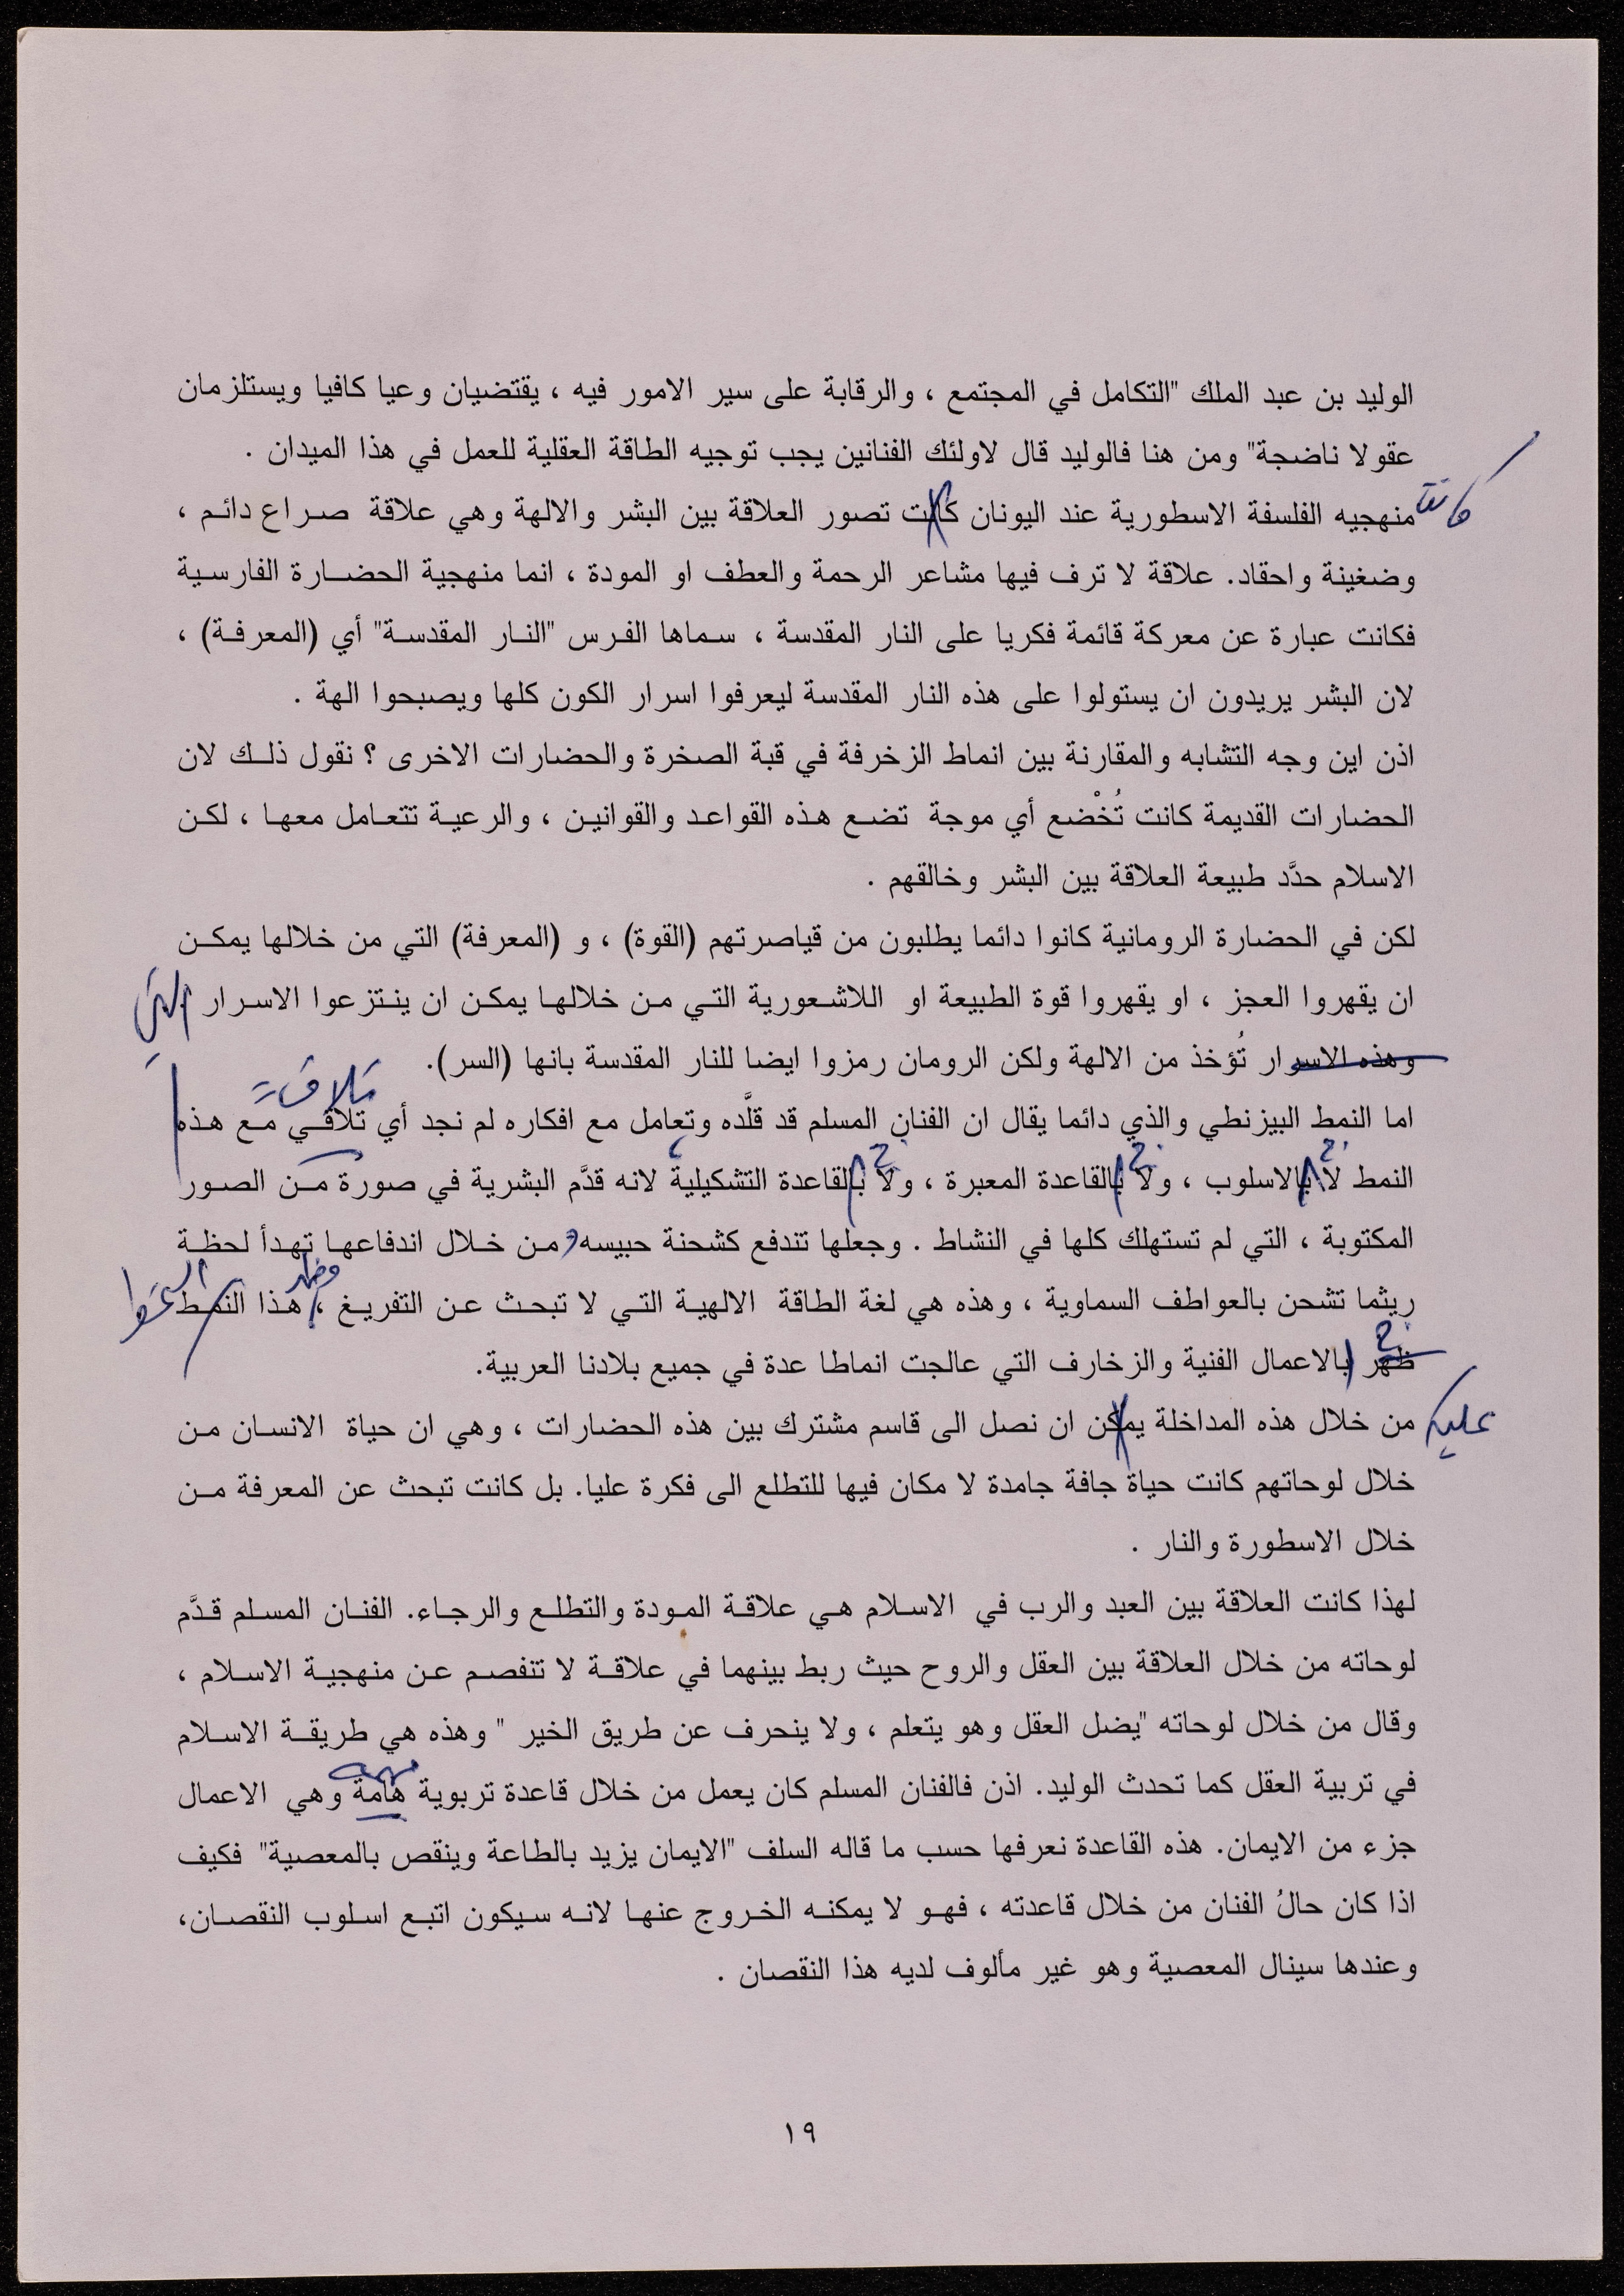 الوليد بن عبد الملك "التكامل في المجتمع ، والرقابة على سير الامور فيه ، يقتضيان وعيا كافيا ويستلزمان
عقولا ناضجة" ومن هنا فالوليد قال لاولئك الفنانين يجب توجيه الطاقة العقلية للعمل في هذا الميدان .
كانت
منهجيه الفلسفة الاسطورية عند اليونان كانت تصور العلاقة بين البشر والالهة وهي علاقة صراع دائم ،
وضغينة واحقاد. علاقة لا ترف فيها مشاعر الرحمة والعطف او المودة ، انما منهجية الحضارة الفارسية
فكانت عبارة عن معركة قائمة فكريا على النار المقدسة ، سماها الفرس "النار المقدسة" أي (المعرفة) ،
لان البشر يريدون ان يستولوا على هذه النار المقدسة ليعرفوا اسرار الكون كلها ويصبحوا الهة .
اذن اين وجه التشابه والمقارنة بين انماط الزخرفة في قبة الصخرة والحضارات الاخرى ؟ نقول ذلك لان
الحضارات القديمة كانت تُخْضع أي موجة تضع هذه القواعد والقوانين ، والرعية تتعامل معها ، لكن
الاسلام حدَّد طبيعة العلاقة بين البشر وخالقهم .
لكن في الحضارة الرومانية كانوا دائما يطلبون من قياصرتهم (القوة) ، و (المعرفة) التي من خلالها يمكن
ان يقهروا العجز ، او يقهروا قوة الطبيعة او اللاشعورية التي من خلالها يمكن ان ينتزعوا الاسرار
التي
وهذه الاسرار تُؤخذ من الالهة ولكن الرومان رمزوا ايضا للنار المقدسة بانها (السر).
تلاق
اما النمط البيزنطي والذي دائما يقال ان الفنان المسلم قد قلَّده وتعامل مع افكاره لم نجد أي تلاقي مع هذه
في في في
النمط لا بالاسلوب ، ولا بالقاعدة المعبرة ، ولا بالقاعدة التشكيلية لانه قدَّم البشرية في صورة من الصور
المكتوبة ، التي لم تستهلك كلها في النشاط . وجعلها تندفع كشحنة حبيسه و من خلال اندفاعها تهدأ لحظة
وظهر
ريثما تشحن بالعواطف السماوية ، وهذه هي لغة الطاقة الالهية التي لا تبحث عن التفريغ ، هذا النمط
في
ظهر بالاعمال الفنية والزخارف التي عالجت انماطا عدة في جميع بلادنا العربية.
من خلال هذه المداخلة يمكن ان نصل الى قاسم مشترك بين هذه الحضارات ، وهي ان حياة الانسان من
خلال لوحاتهم كانت حياة جافة جامدة لا مكان فيها للتطلع الى فكرة عليا. بل كانت تبحث عن المعرفة من
خلال الاسطورة والنار .
لهذا كانت العلاقة بين العبد والرب في الاسلام هي علاقة المودة والتطلع والرجاء. الفنان المسلم قدَّم
لوحاته من خلال العلاقة بين العقل والروح حيث ربط بينهما في علاقة لا تنفصم عن منهجية الاسلام ،
وقال من خلال لوحاته "يضل العقل وهو يتعلم ، ولا ينحرف عن طريق الخير " وهذه هي طريقة الاسلام
مهمه
في تربية العقل كما تحدث الوليد. اذن فالفنان المسلم كان يعمل من خلال قاعدة تربوية هامة وهي الاعمال
جزء من الايمان. هذه القاعدة نعرفها حسب ما قاله السلف "الايمان يزيد بالطاعة وينقص بالمعصية" فكيف
اذا كان حالُ الفنان من خلال قاعدته ، فهو لا يمكنه الخروج عنها لانه سيكون اتبع اسلوب النقصان،
وعندها سينال المعصية وهو غير مألوف لديه هذا النقصان .
١٩